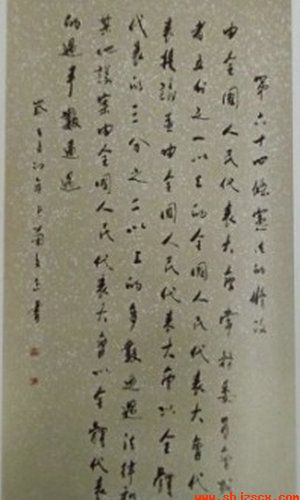 第六十四條憲法的修改
由全國人民代表大會常務委員會或
者五分之一以上的全國人民代表大會代
表提議並由全國人民代表大會以全體
代表的三分之二以上的多數通過法律和
其他議案由全國人民代表大會以全體代表
的過半數通過
癸巳 書
shjzscx.com